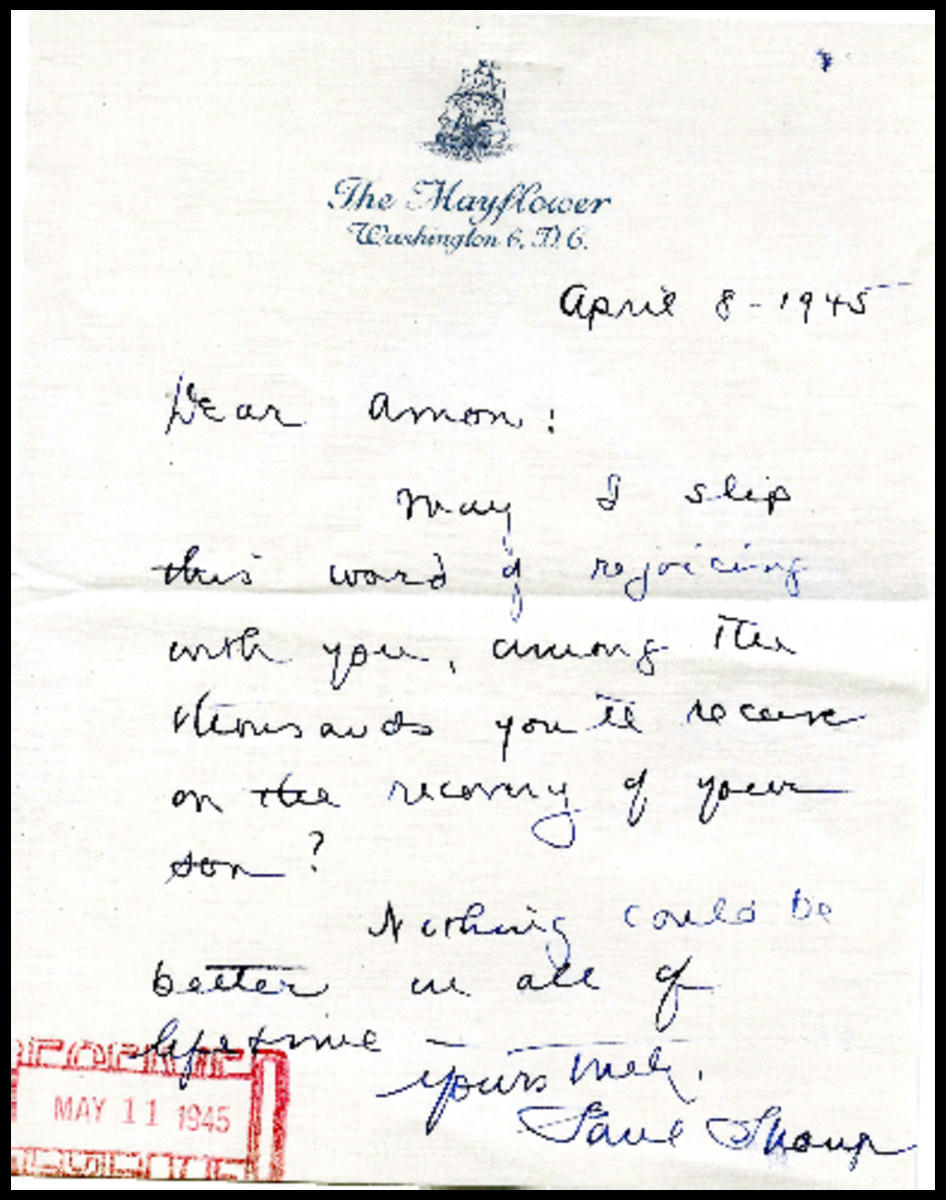 The Mayflower
Washington 6, D.C.
April 8 - 1945
Dear Amon:
May I slip
this word of rejoicing
with you, among the
thousands you'll receive
on the recovery of your
son?
Nothing could be
better in all of
lifetime -
yours truly,
Paul Shoup
MAY 11 1945